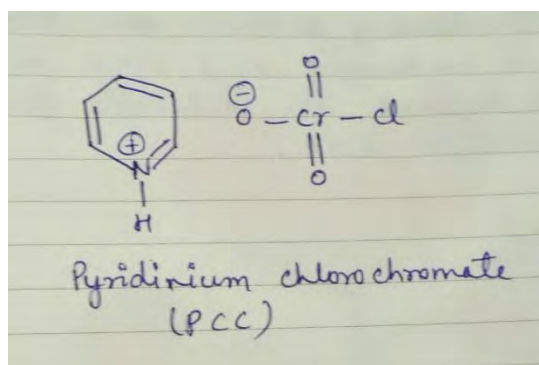 O
O - Cr - Cl
O
N
H
Pyridinium chlorochromate
(PCC)